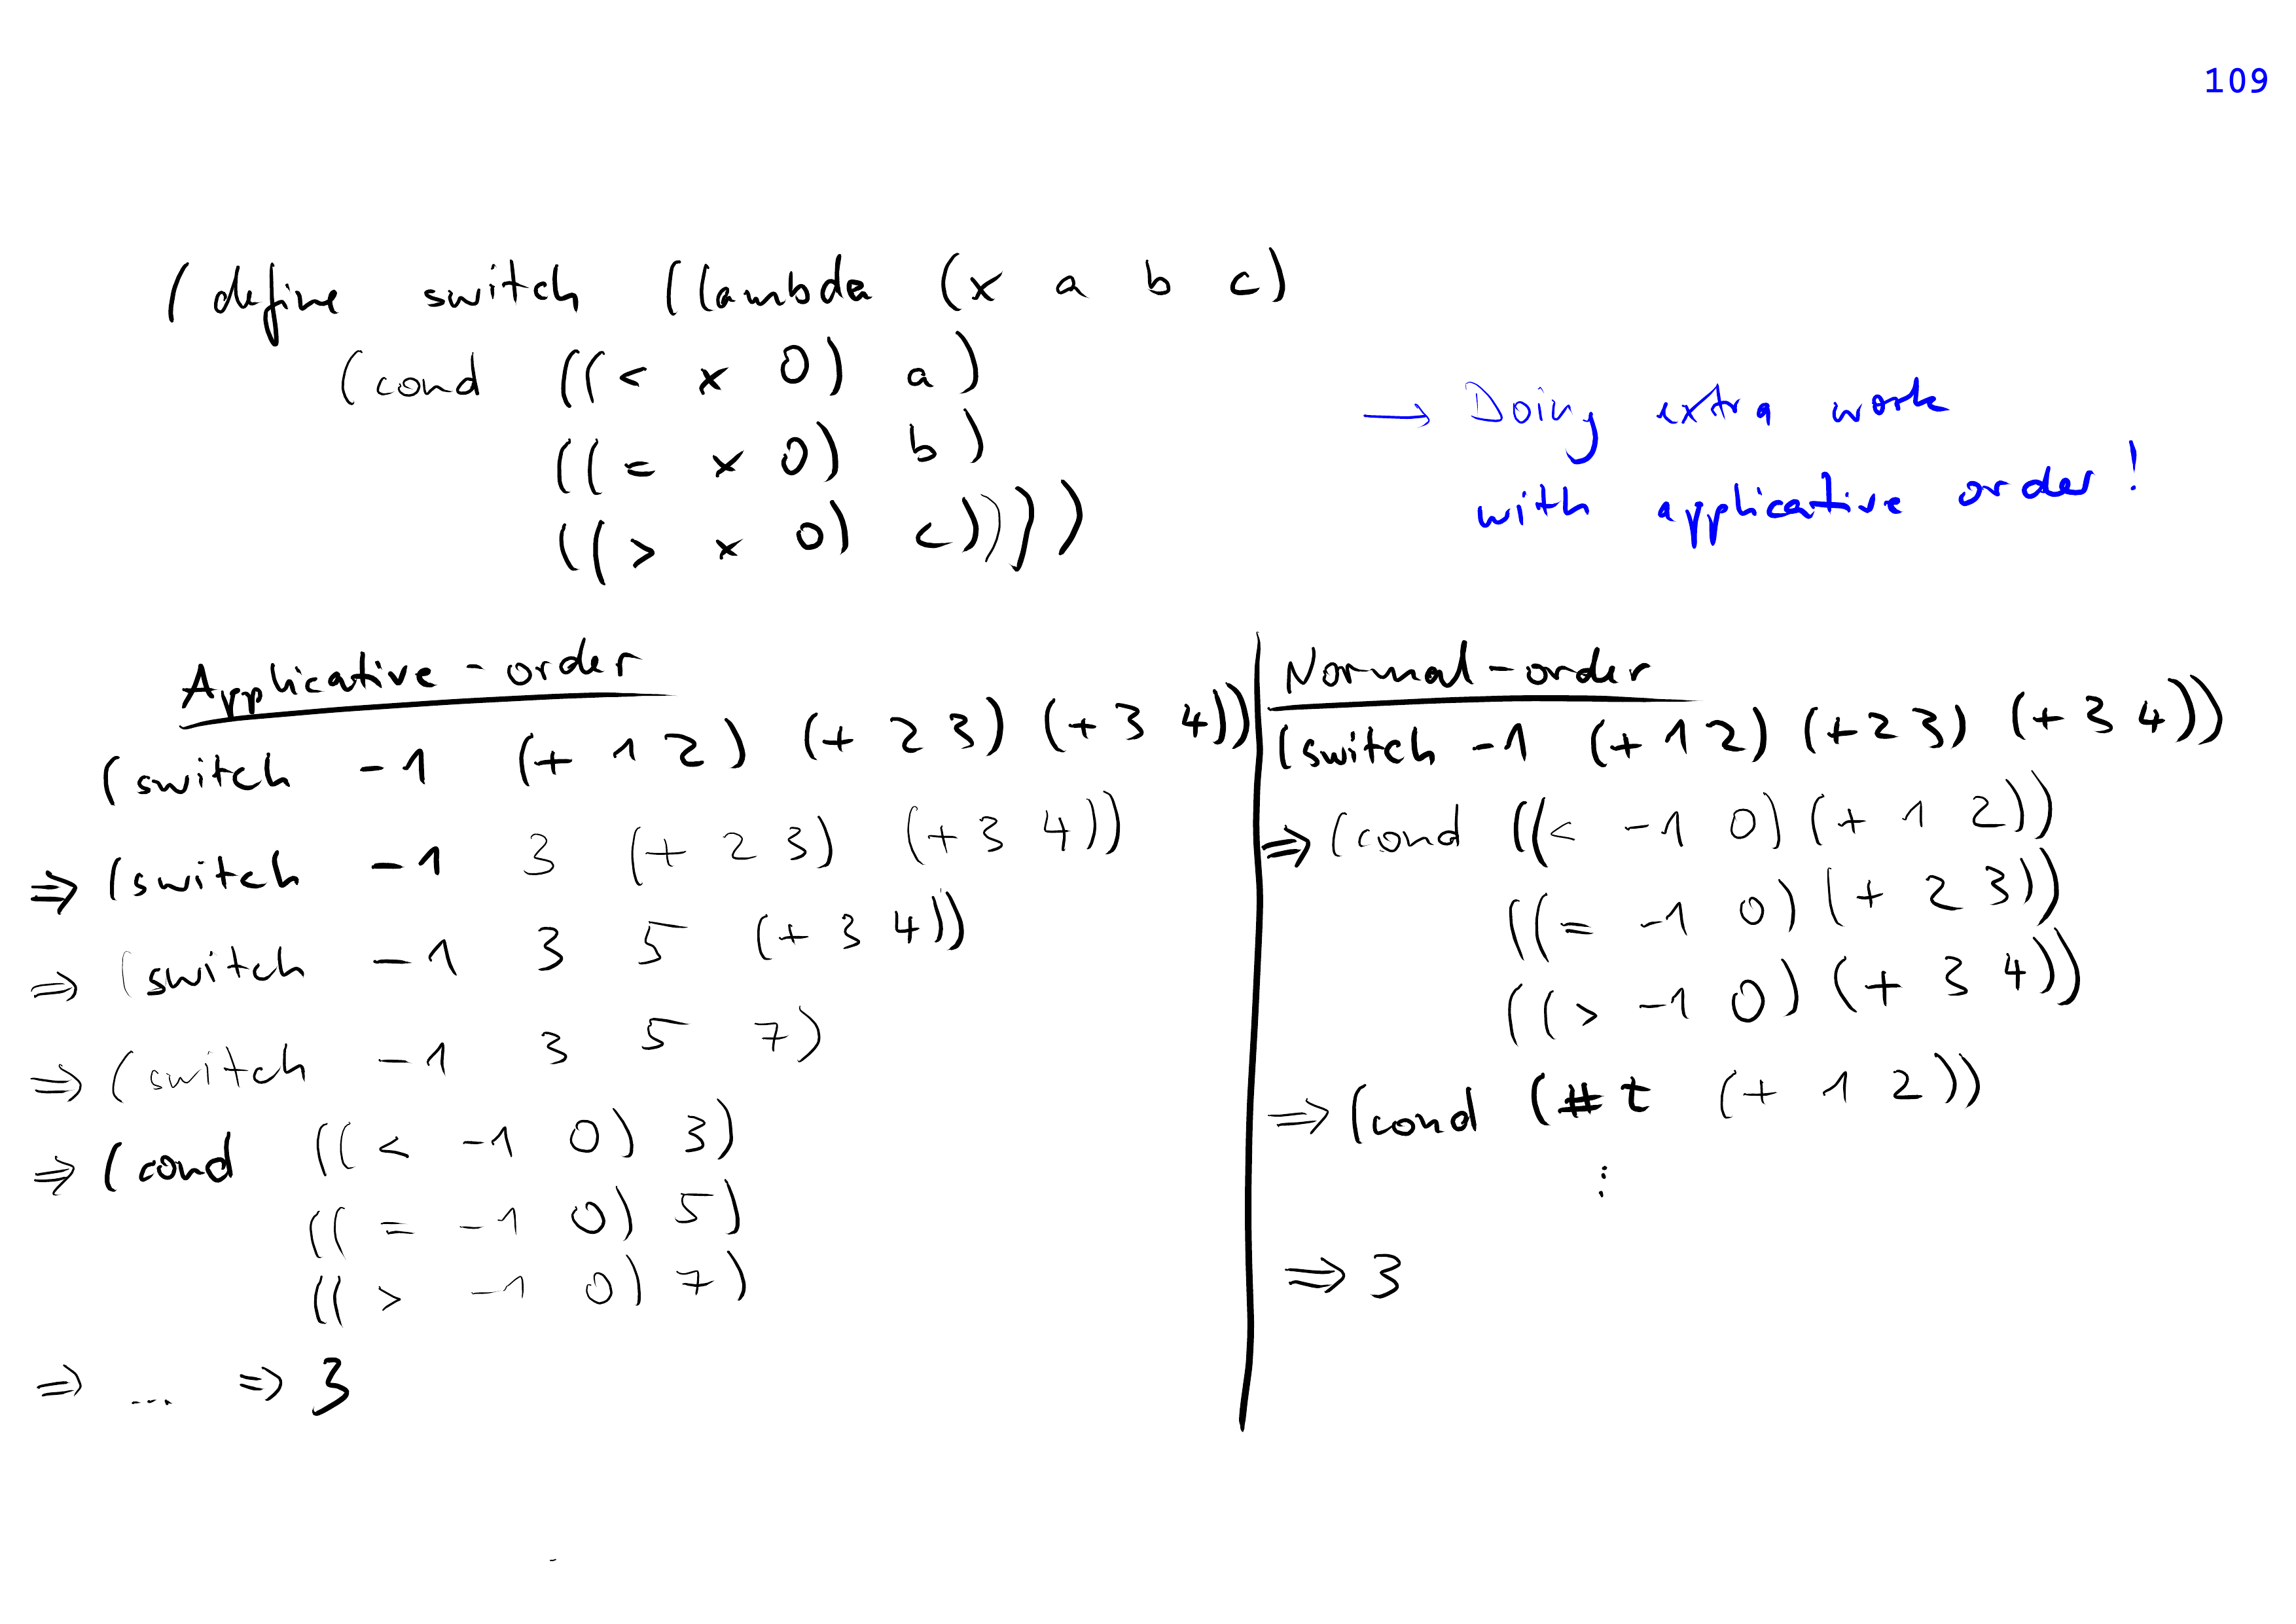 109
(define switch (lambda (x a b c)
(cond ((< x 0) a)
((= x 0) b)
((> x 0) c))))
→ Doing extra work
with applicative order!
Applicative-order
(switch -1 (+ 1 2) (+ 2 3) (+ 3 4))
⇒ (switch -1 3 (+ 2 3) (+ 3 4))
⇒ (switch -1 3 5 (+ 3 4))
⇒ (switch -1 3 5 7)
⇒ (cond ((< -1 0) 3)
((= -1 0) 5)
((> -1 0) 7)
⇒ ... ⇒ 3
Normal-order
(switch -1 (+ 1 2) (+ 2 3) (+ 3 4))
⇒ (cond ((< -1 0) (+ 1 2))
((= -1 0) (+ 2 3))
((> -1 0) (+ 3 4))
⇒ (cond (#t (+ 1 2))
⋮
⇒ 3